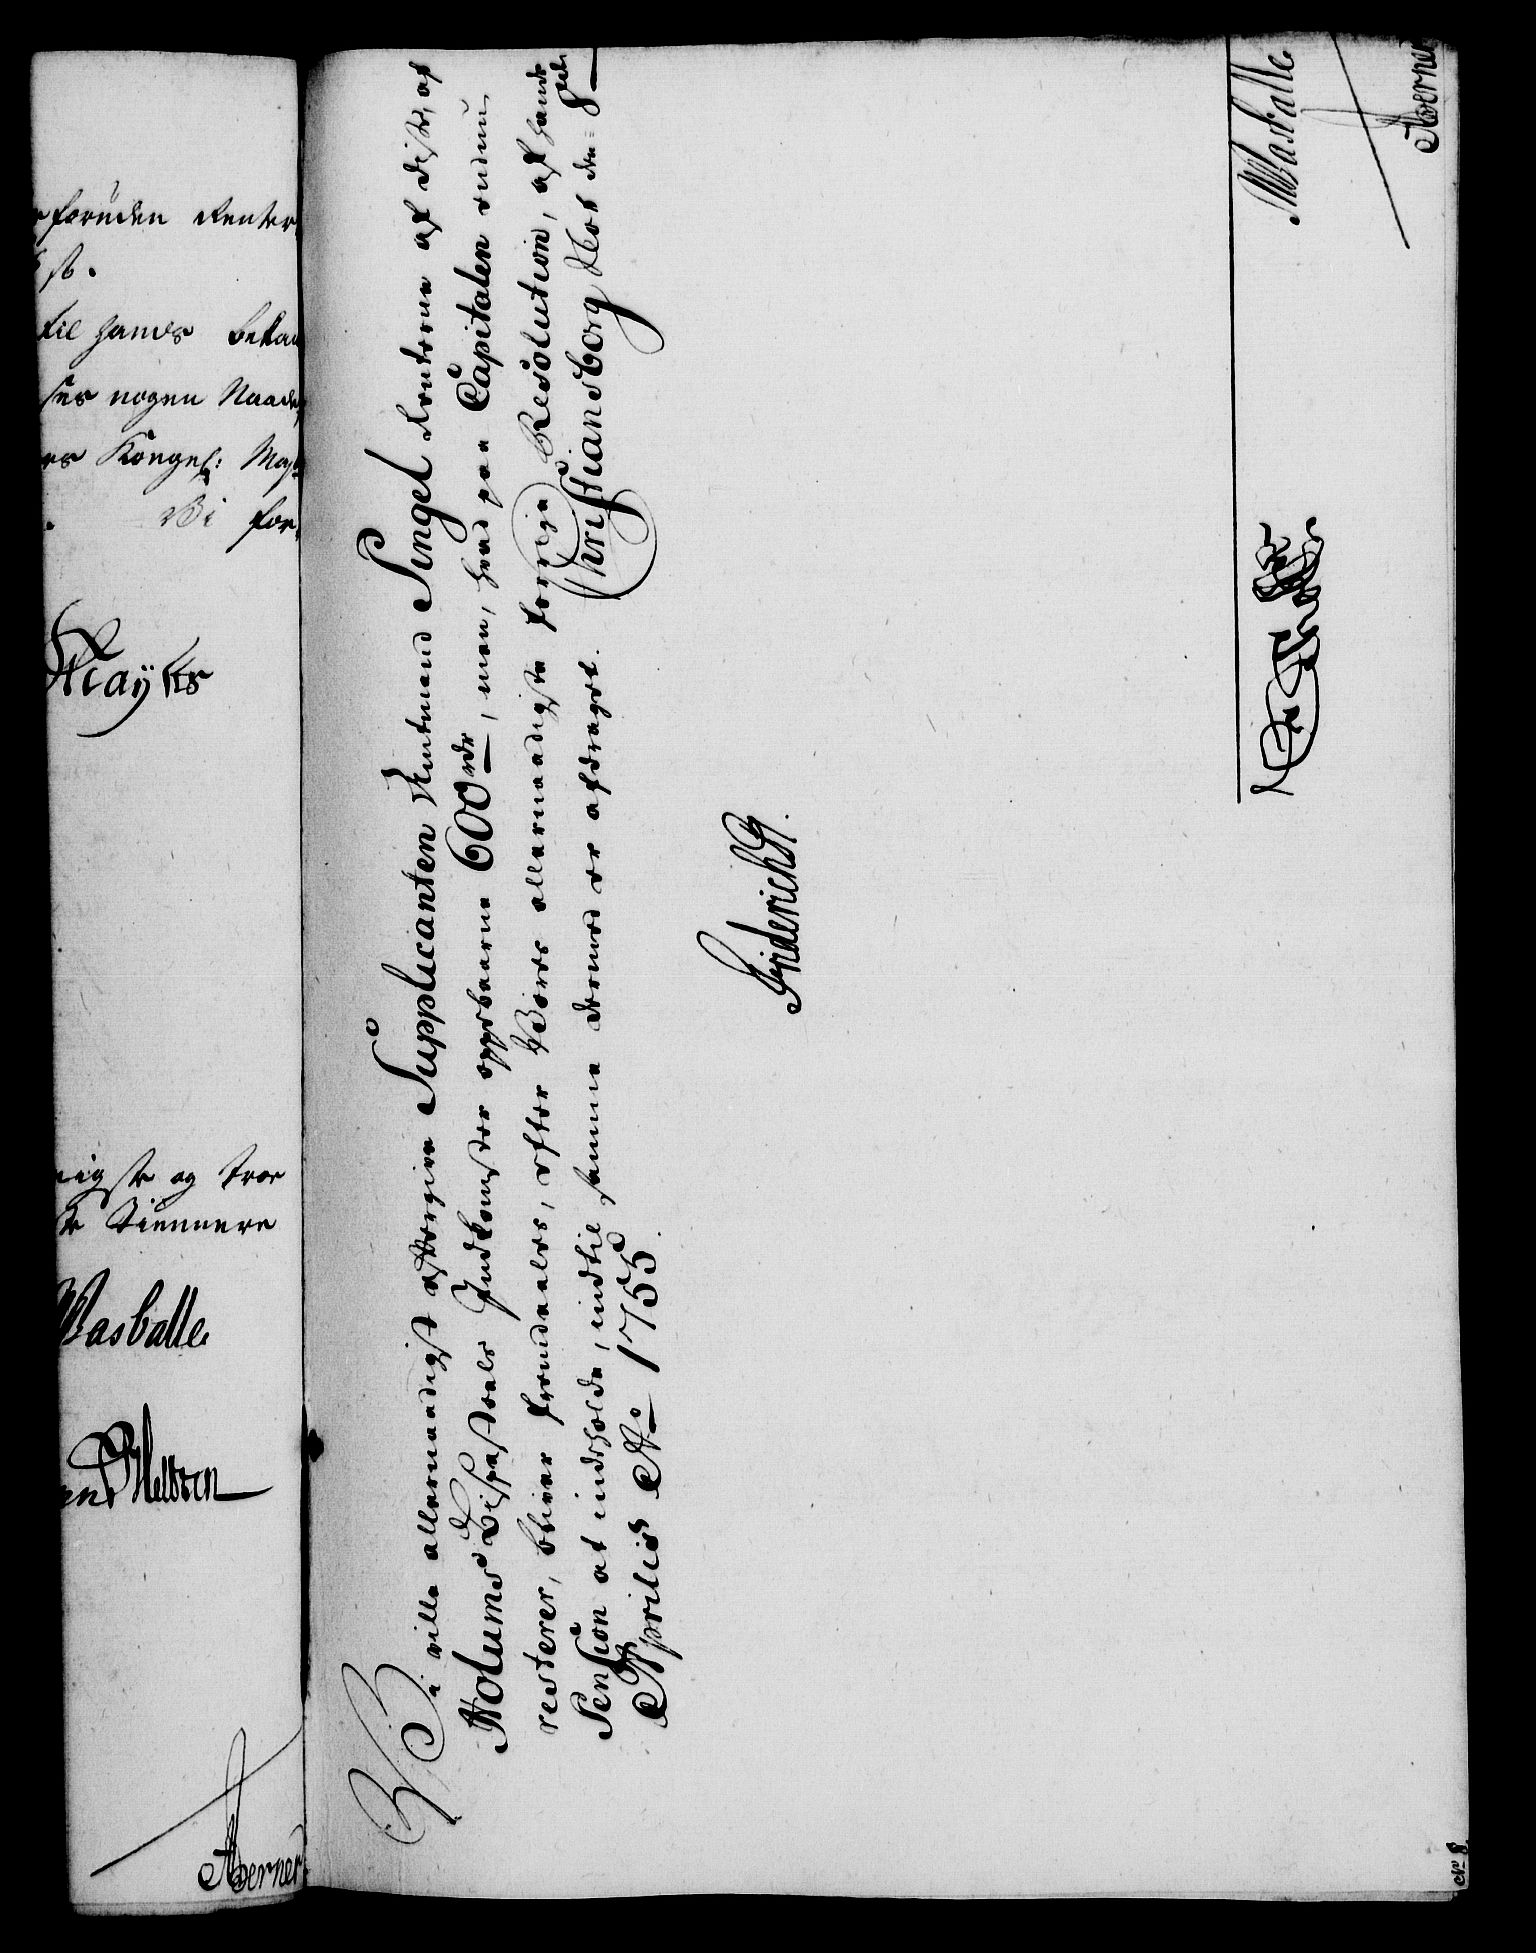 foruden Renter
st.
til hands betal
ses nogen Naade
es Kongel: May
Vi for
nigste og troe
te Tiennere
Wasballe
Averner
Vi ville allernaadigst eftergive Supplicanten Amtmand Singel Renterne af disse, af
Holums Bispestoels Indkomster oppebaarne 600 rdr, men, hvad paa Capitalen endnu
resterer, bliver fremdeeles, efter Vores allernaadigste forrige Resolution, af hands
Pension at indeholde, indtil samme dermed er afdraget. Christiansborg Slot den 8de
Aprilis Ao 1755.
Friderich R.
Wasballe
Averner
No 8